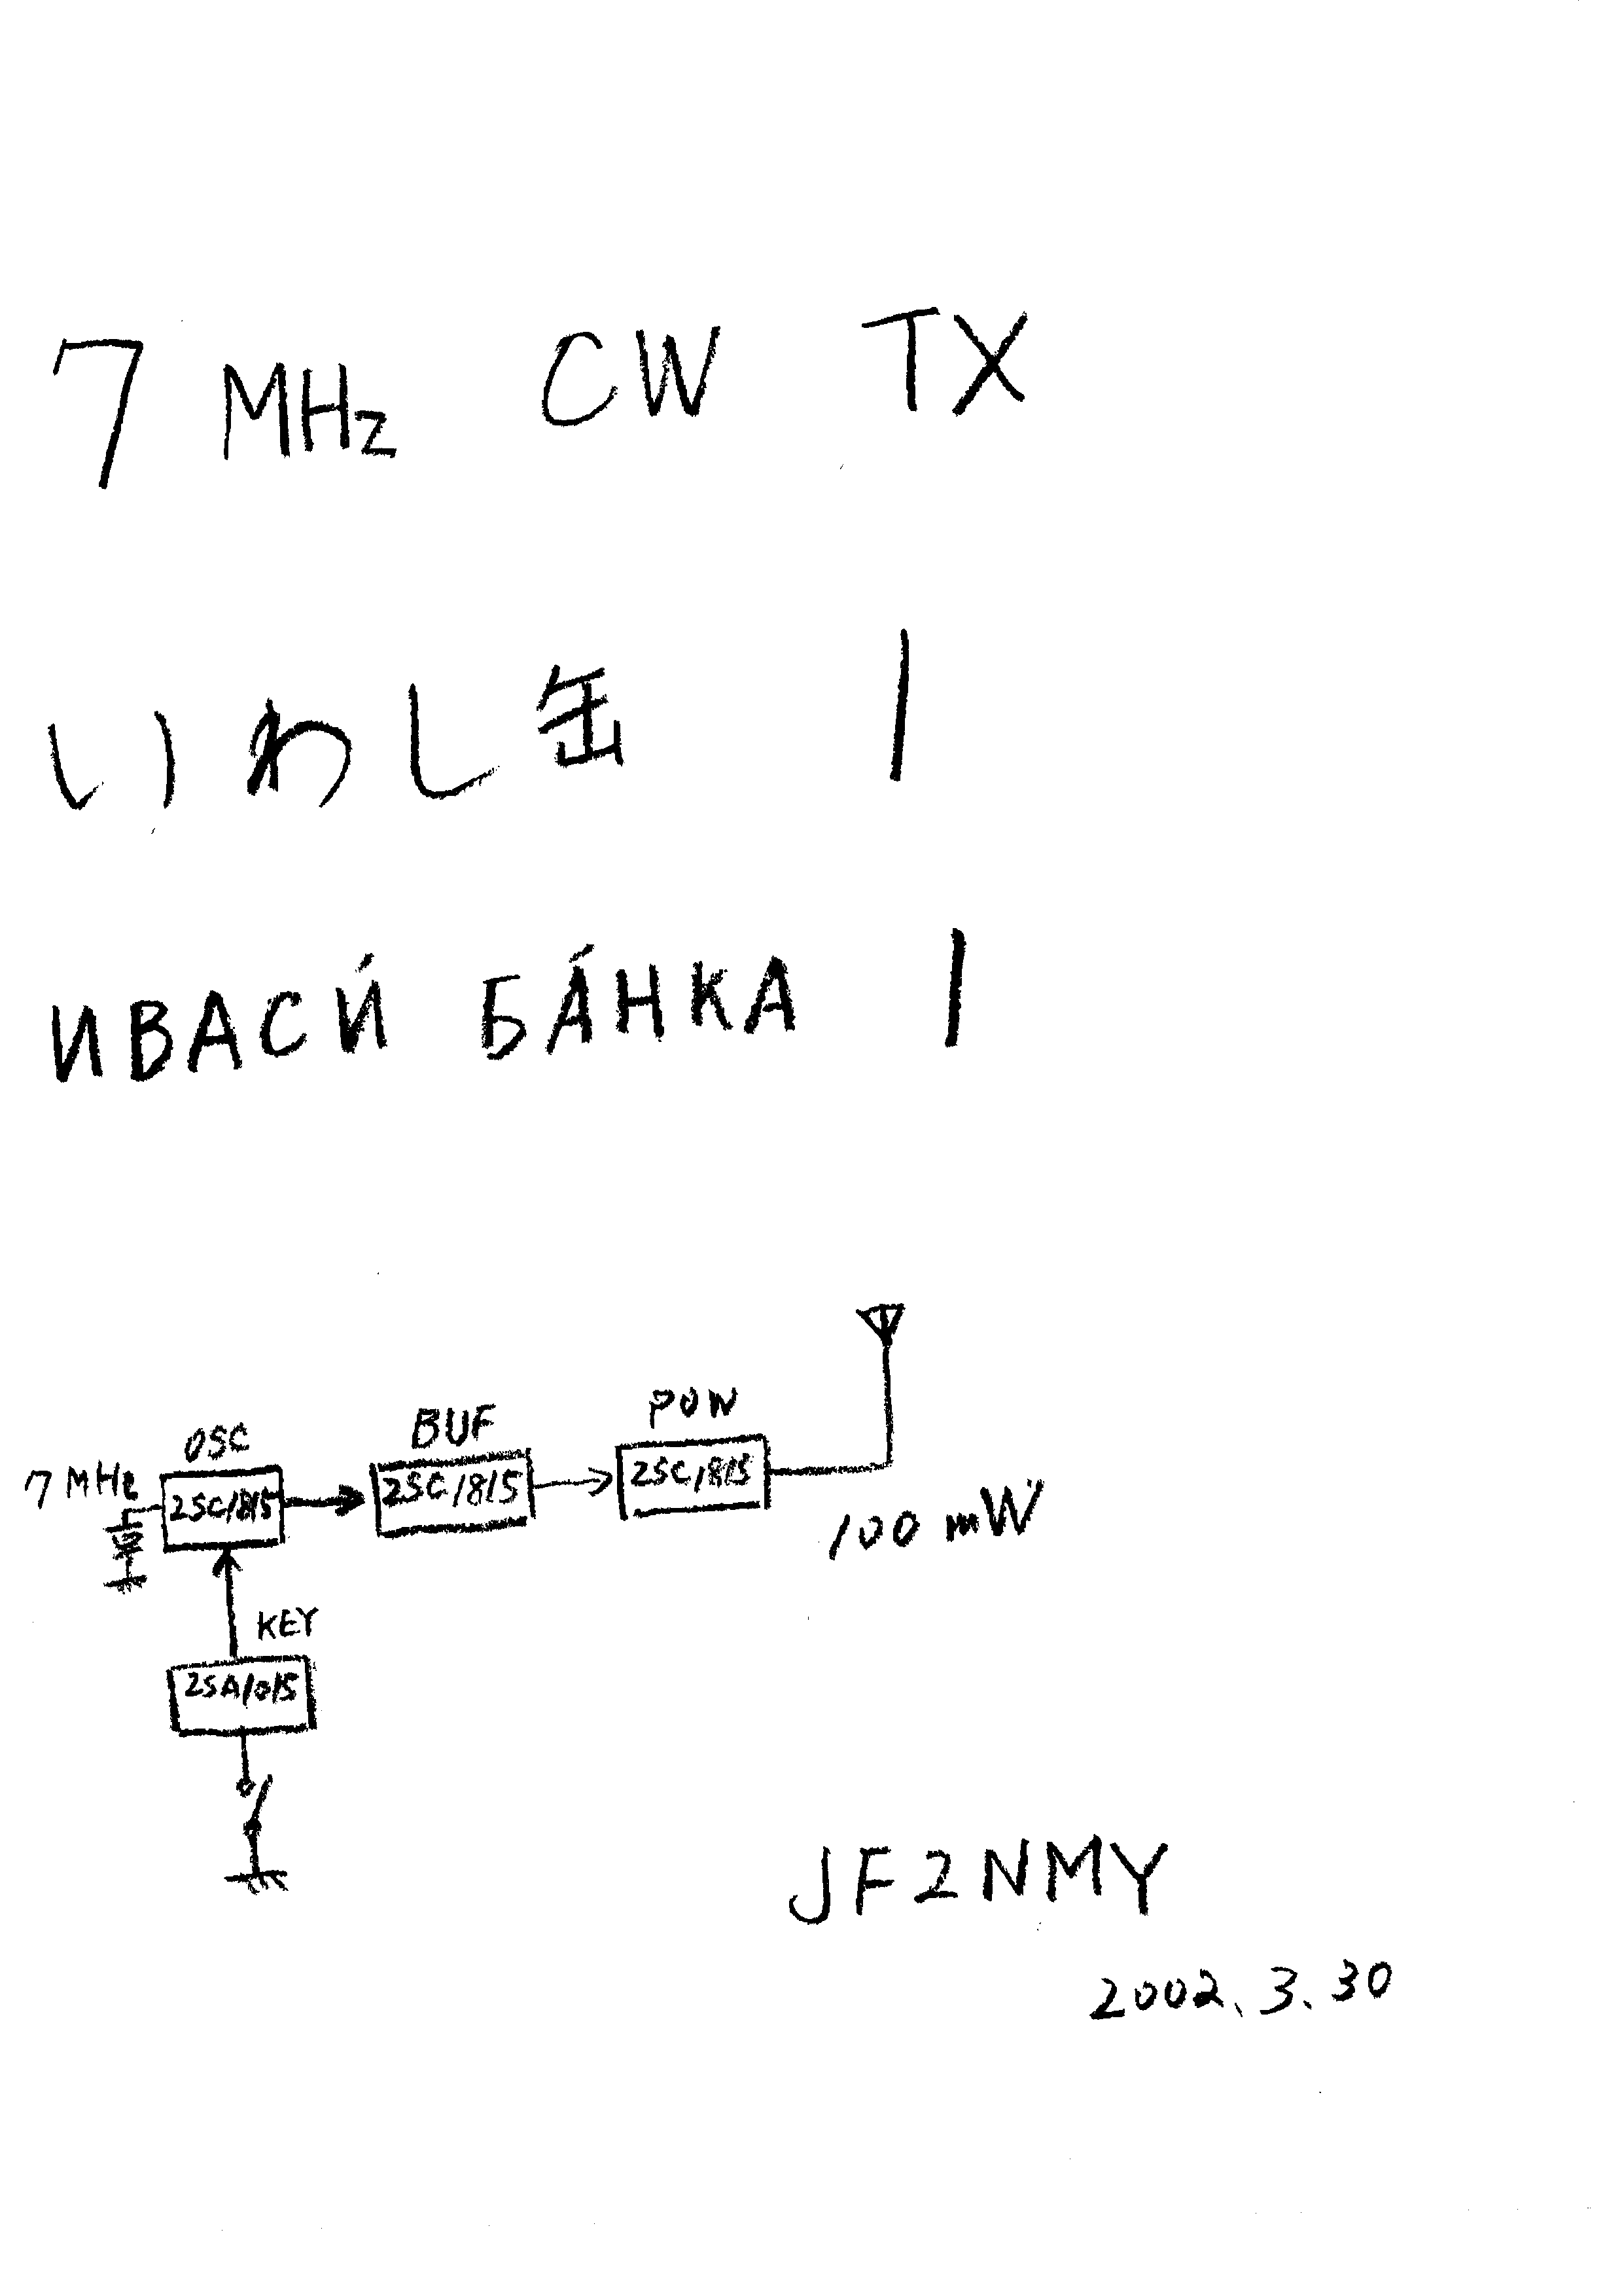 7 MHz CW TX
いわし缶 1
ИВАСИ́ БА́НКА 1
OSC BUF POW
7 MHz 2SC1815 2SC1815 2SC1815
100 mW
KEY
2SA1015
JF2NMY
2002.3.30